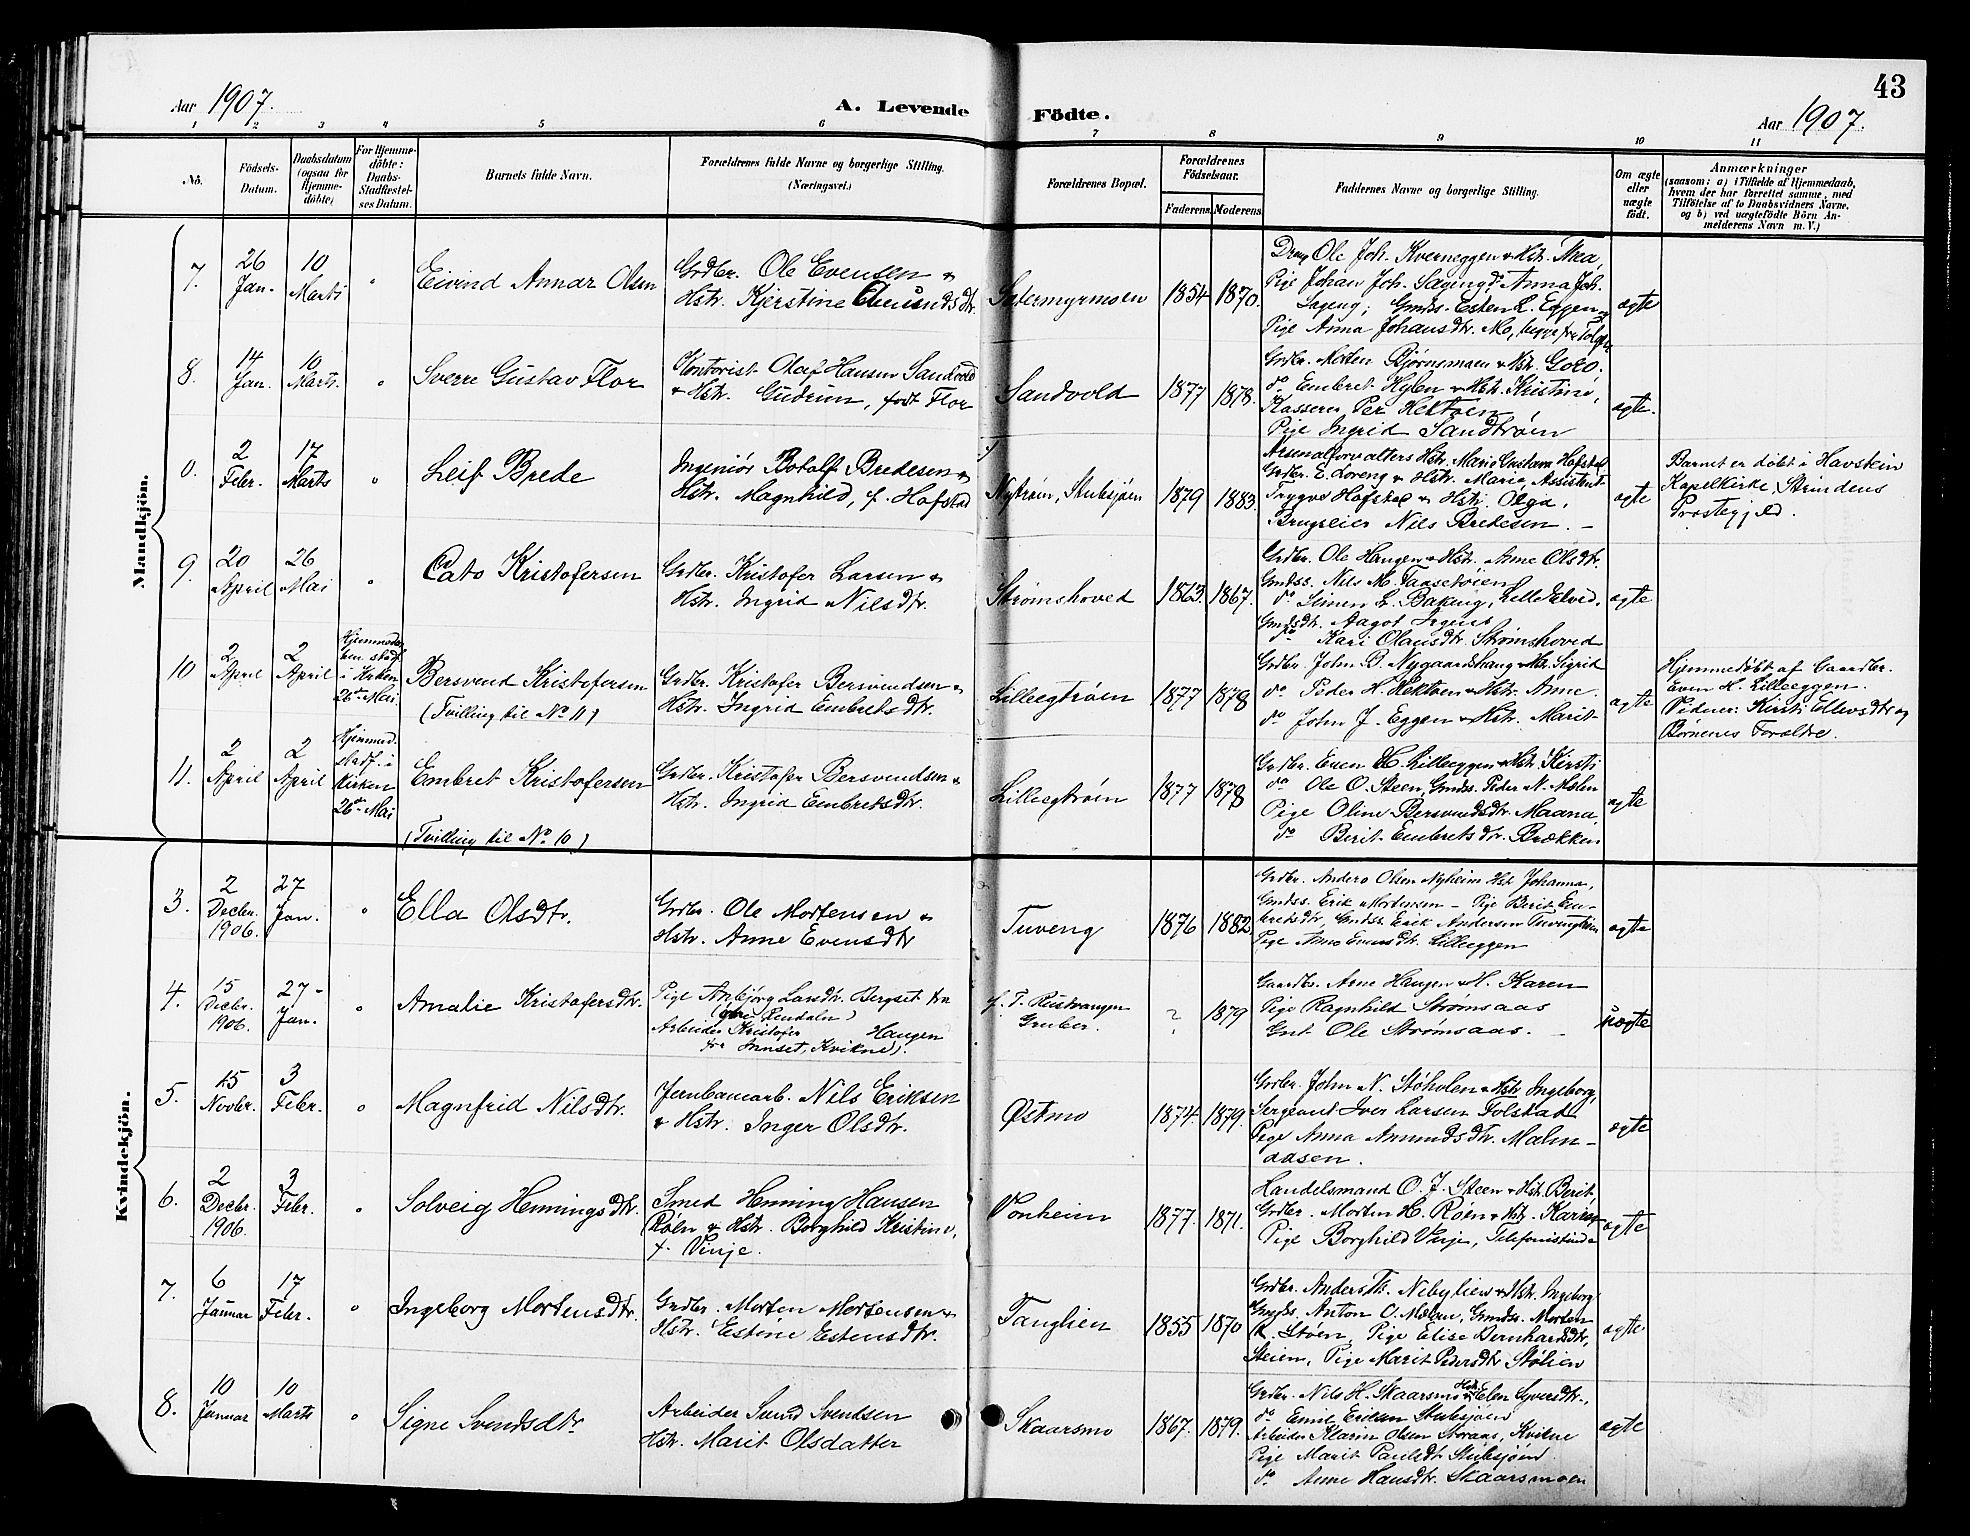 43
Aar 1907.
A. Levende Födte.
Aar 1907.
1 2 3 4 5 6 7 8 9 10 11
No.
Födsels-
Datum.
Daabsdatum
(ogsaa for
Hjemme-
döbte)
For Hjemme-
döbte:
Daabs-
Stadfæstel-
ses Datum.
Barnets fulde Navn.
Forældrenes fulde Navne og borgerlige Stilling.
(Næringsvei.)
Forældrenes Bopæl.
Forældrenes
Födselsaar.
Faderens. Moderens.
Faddernes Navne og borgerlige Stilling.
Om ægte
eller
uægte
født.
Anmærkninger
(saasom: a) i Tilfælde af Hjemmedaab,
hvem der har forrettet samme, med
Tilföielse af to Daabsvidners Navne,
og b) ved uægtefödte Börn An-
melderens Navn m. V.)
Mandkjön.
7.
26
Jan.
10
Marts
"
Eivind Annar Olsen
Grdbr. Ole Evensen &
Hstr. Kjerstine
Sætermyrmoen
1854
1870.
Ole Joh. Kverneggen & Hstr. Thea,
Pige Johan Joh. Sageng, Anna Joh.
Sageng; Gmds. Esten E. Eggen &
Pige Anna Johansdtr. Mo, begge fra Tolgen
ægte
8.
14
Jan.
10
Marts.
"
Sverre Gustav Flor
Kontorist Olaf Hansen Sandvold
& Hstr. Gudrun, født Flor
Sandvold
1877
1878.
Grdbr. Morten Bjørnsmoen & Hstr. Goro.
do Embret Hylen & Hstr. Kristine,
Kasserer Per Hektoen
Pige Ingrid Sandtrøen
ægte.
0.
2
Febr.
17
Marts
"
Leif Brede
Ingeniör Botolf Bredesen &
Hstr. Magnhild, f. Hofstad
Nytrøen, Stubsjøen
1879
1883.
Arsenalforvalters Hstr. Marie Gustava Hofstad
Grdbr. E. Loreng & Hstr. Marie, Assistent
Trygve Hofstad & Hstr. Olga,
Brugseier Nils Bredesen. —
ægte
Barnet er døbt i Havstein
Kapelkirke, Strindens
Præstegjeld.
9.
20
April
26
Mai
"
Cato Kristofersen
Grdbr. Kristofer Larsen &
Hstr. Ingrid Nilsdtr.
Strømshoved
1863.
1867.
Grdbr. Ole Haugen & Hstr. Anne Olsdtr.
Gmdss. Nils M. Taasetrøien
do Simen E. Bakeng, Lille Elved.
Gmdsdtr. Aagot
do Kari Olausdtr. Strømshoved
ægte
10
2
April
2
April
Hjemmedaa-
ben stadf.
i Kirken
26de Mai
Bersvend Kristofersen
(Tvilling til No 11)
Grdbr. Kristofer Bersvendsen &
Hstr. Ingrid Embretsdtr.
Lilleegtrøen
1877
1878
Grdbr. John P. Nygaardshaug & Hstr. Sigrid
do Peder H. Hektoen & Hstr. Anne.
do John J. Eggen & Hstr. Marit
ægte
Hjemmedøbt af Gaardbr.
Even H. Lilleeggen.
Vidner: Kirsti Ellevsdtr og
Børnenes Forældre.
11.
2
April
2
April
Hjemmed.
stadf. i
Kirken
26de Mai
Embret Kristofersen
(Tvilling til No 10)
Grdbr. Kristofer Bersvendsen &
Hstr. Ingrid Embretsdtr.
Lilleegtrøen
1877
1878
Grdbr. Even H. Lilleeggen & Hstr. Kirsti
do Ole O. Steen, Gmdss. Peder N. Moen
Pige Oline Bersvendsdtr. Maana
do Berit Embretsdtr. Brækken
ægte
Kvindekjön.
3.
2
Decbr.
1906.
27
Jan.
"
Ella Olsdtr.
Grdbr. Ole Mortensen &
Hstr. Anne Evensdtr
Tuveng
1876
1882.
Grdbr. Anders Olsen Nyheim Hst Johanna,
Gmdss. Erik Mortensen — Pige Berit Em-
bretsdtr, Gmdss. Erik Andersen Tuvengtrøen
Pige Anne Evensdtr. Lilleeggen
ægte
4.
15
Decbr.
1906.
27-
Jan.
"
Amalie Kristofersdtr.
Pige Anbjørg Larsdtr. Bergset fra
(øvre Rendalen)
Arbeider Kristofer Haugen
fra Innset, Kvikne).
f. T. Rustvangen
Gruber.
?
1879
Gaardbr. Arne Haugen & H. Karen
Pige Ragnhild Strømsaas
Gmt. Ole Strømsaas. —
uægte
5.
15
Novbr.
3
Febr.
"
Magnfrid Nilsdtr.
Jernbanearb. Nils Eriksen
& Hstr. Inger Olsdtr.
Østmo
1874.
1879.
Grdbr. John N. Støhølen & Hstr Ingeborg,
Sergeant Iver Larsen Tolstad
Pige Anna Amundsdtr. Malm-
aasen.
ægte
6.
2
Decbr.
1906
3
Febr.
"
Solveig Henningsdtr.
Smed Henning Hansen
Røen & Hstr. Borghild Kristine,
f. Vinje.
Vonheim
1877.
1871.
Handelsmand O. J. Steen & Hstr. Berit,
Grdbr. Morten H. Roen & Hstr. Karen
Pige Borghild Vinje, Telefonistinde
ægte
7.
6
Januar
17
Febr.
"
Ingeborg Mortensdtr.
Grdbr. Morten Mortensen &
Hstr. Estine Estensdtr.
Tanglien
1855
1870
Grdbr. Anders Th. Nebylien & Hstr. Ingeborg
Gmdss. Anton O. Moen, Gmdss. Morten
R. Støen, Pige Elise Bernhardsdtr,
Steien, Pige Marit Pedersdtr Stølien
ægte
8.
10
Januar
10
Marts
"
Signe Svendsdtr.
Arbeider Svend Svendsen
Hstr. Marit Olsdatter
Skaarsmo
1867.
1879.
Grdbr. Nils H. Skaarsmo & Hstr. Elen Syversdtr.,
do Emil Eriksen Stubsjøen
Arbeider Klarin Olsen Storaas, Kvikne
Pige Marit Paulsdtr Stubsjøen
do Anne Hansdtr. Skaarsmoen
ægte